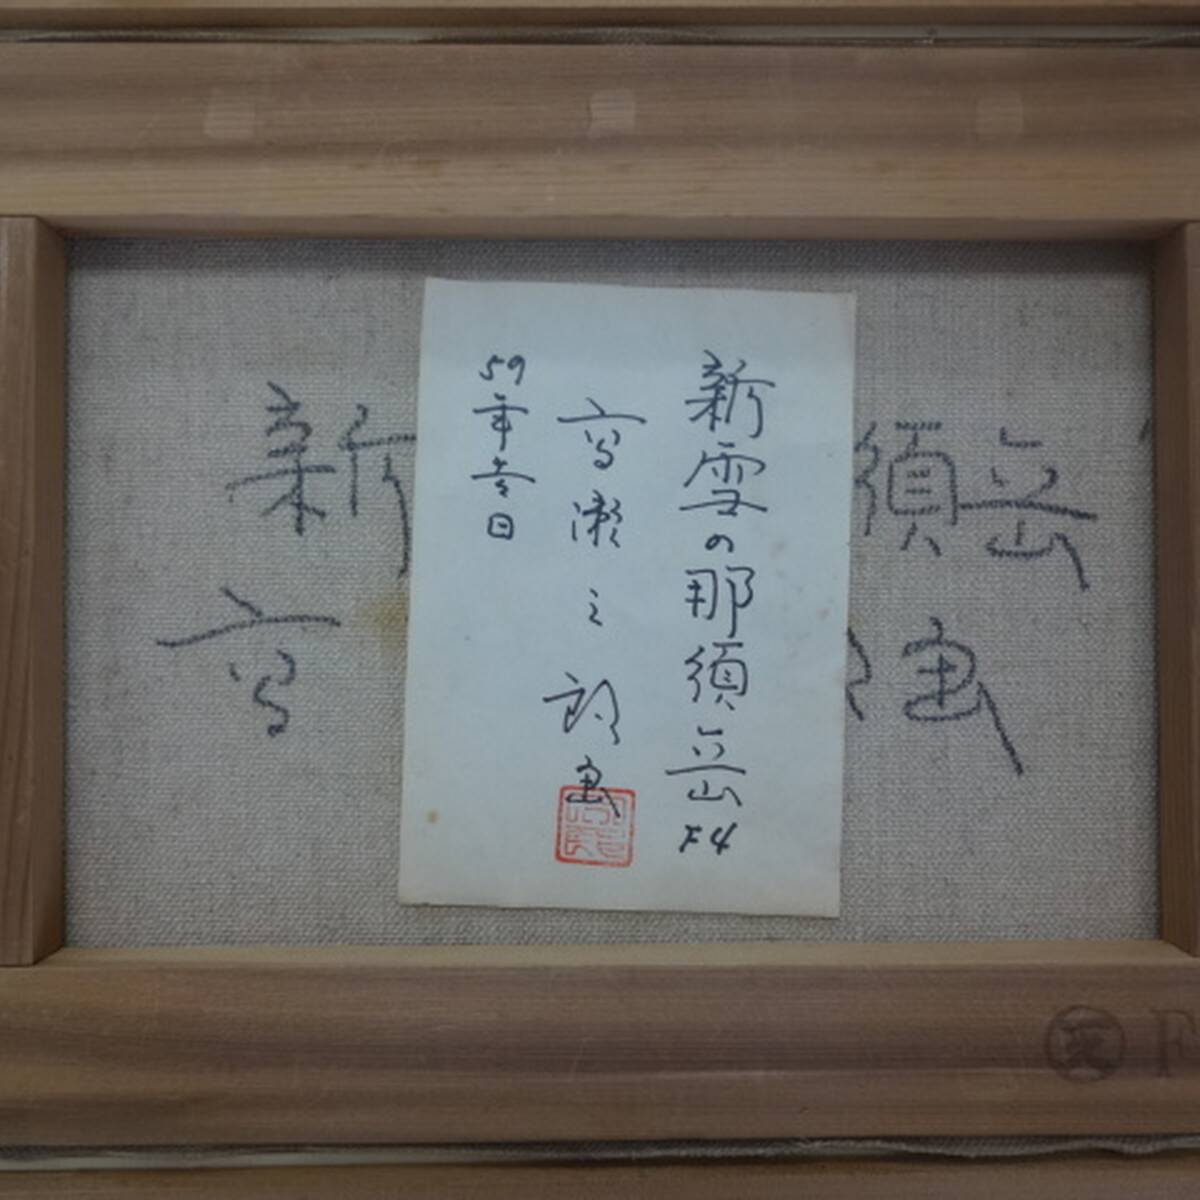 新雪の那須岳 F4
高瀬之郎画
59年 日
新 須岳
高 画
F